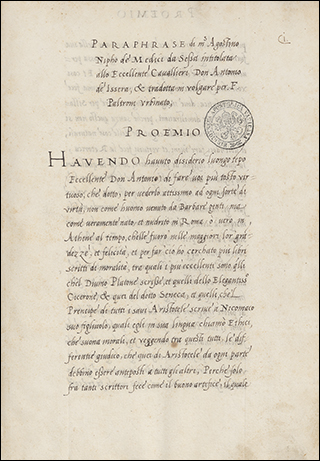 PARAPHRASE di mº Agostino
Nipho de Medici da Sessa intitolata
allo Eccellente Cavallieri Don Antonio
de Issera, & tradotta in volgare per F.
Urbinato;
PROEMIO
HAVENDO havuto disiderio luongo tēpo
Eccellente Don Antonio di fare voi più tosto vir
tuoso, che dotto, per vederlo attissimo ad ogni sorte di
virtù, non come huomo venuto da Barbare genti, ma
come veramente nato, et nudrito in Roma, o vero in
Athene al tempo, chelle fuoro nelle maggiori lor grā
dezze, et felicità, et per far ciò ho cerchato più libri
scritti di moralità, tra quali i più eccellenti sono gli
chel Divino Platone scrisse, et quelli dello Elegantiss
Cicerone, & quei del dotto Seneca, et quelli che'l
Prencipe di tutti i savi Aristotele scrive a Nicomaco
suo figliuolo, quali egli in sua lingua chiamò Ethici,
che suona morali, et veggendo tra questi tutti, le dif
ferentie giudico, che quei di Aristotele da ogni parte
debbino essere anteposti a tutti gli altri. Perche solo
fra tanti scrittori fece come il buono artefice, il quale